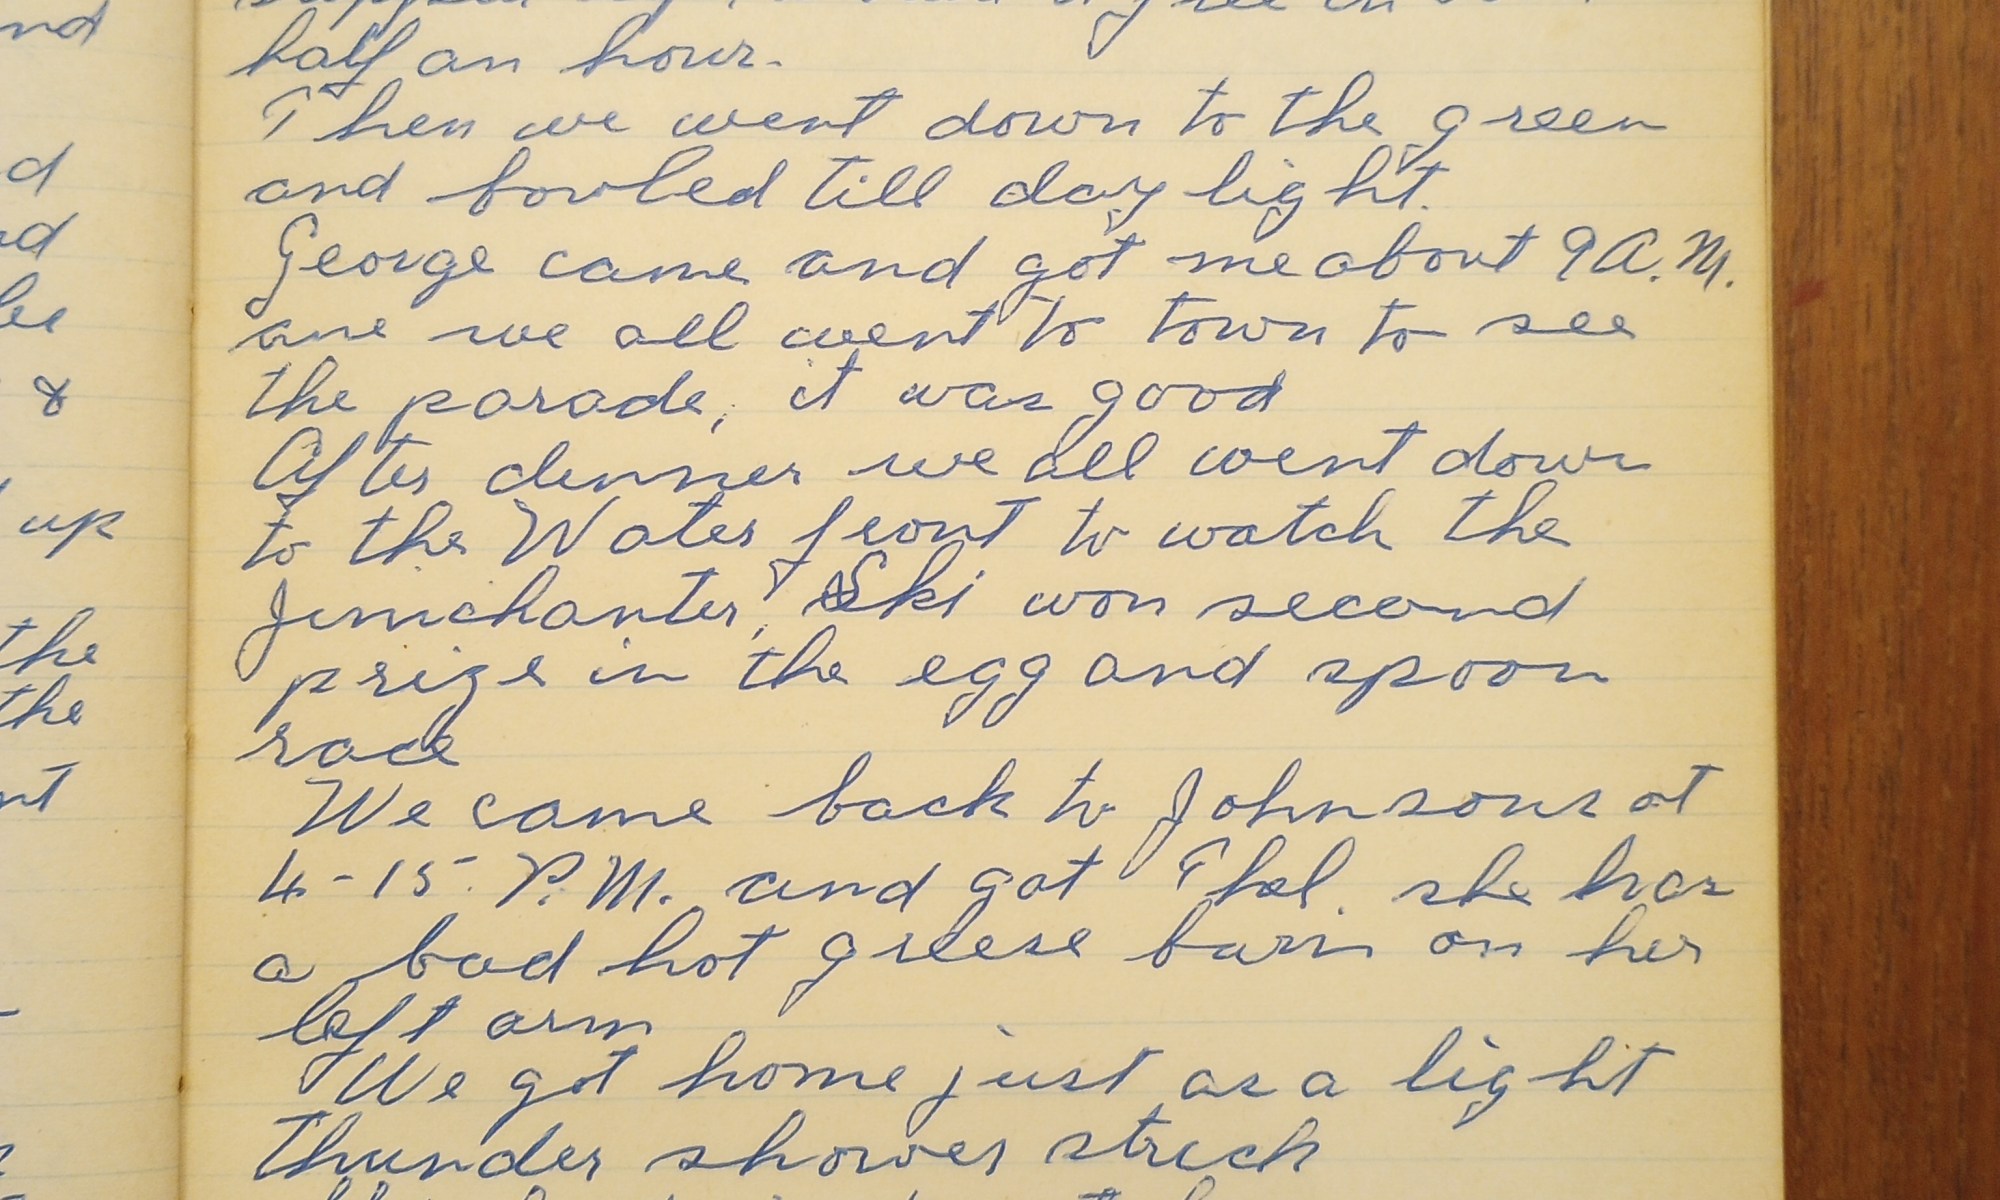 nd
d
nd
&
up
the
the
half an hour.
Then we went down to the green
and bowled till day light.
George came and got me about 9 A.M.
ane we all went to town to see
the parade, it was good
After dinner we all went down
to the Water front to watch the
Ski won second
prize in the egg and spoon
race
We came back to Johnsons at
4-15. P.M. and got Thel. she has
a bad hot greese burn on her
left arm
We got home just as a light
thunder shower struck